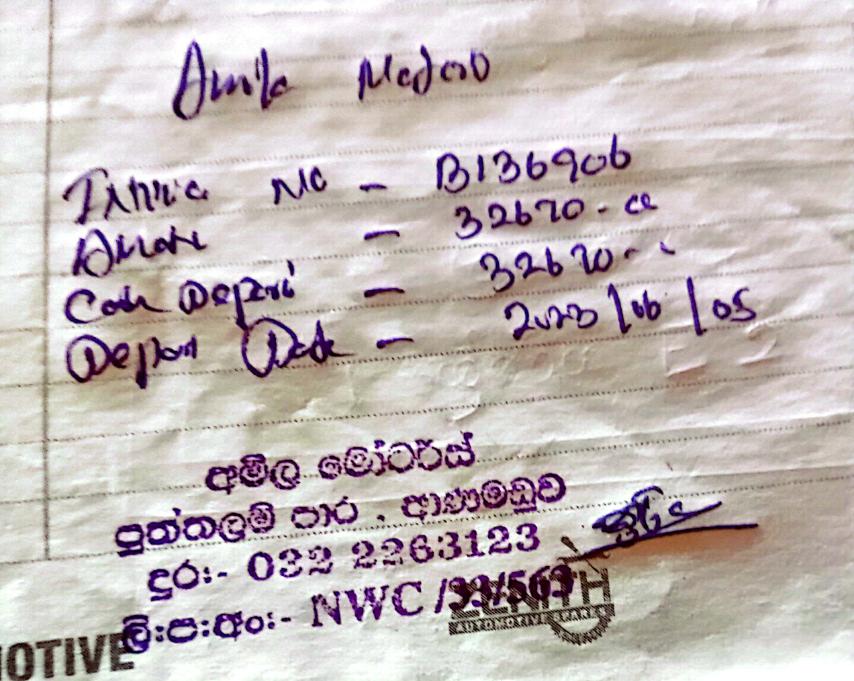 Amila Motors
Invoice No - B136906
Amount - 32670.00
Cash Deposit - 32670
Deposit Date - 2023/06/05
අමිල මෝටර්ස්
පුත්තලම් පාර . ආණමඩුව
දුර:- 032 2263123
ලි:ප:අං:- NWC /33/563
ZENITH
AUTOMOTIVE SPARES
MOTIVE